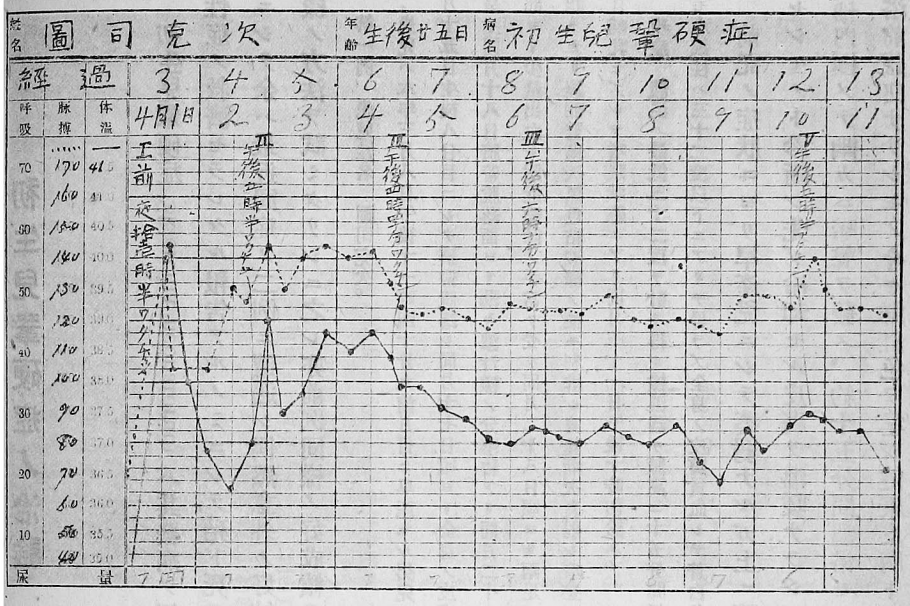 姓名 圖司克次 年齢 生後廿五日 病名 初生兒鞏硬症
經過 3 4 5 6 7 8 9 10 11 12 13
呼吸 脉搏 体温 4月1日 2 3 4 5 6 7 8 9 10 11
70 170 41.5
160 41.0
60 150 40.5
140 40.0
50 130 39.5
120 39.0
40 110 38.5
100 38.0
30 90 37.5
80 37.0
20 70 36.5
60 36.0
10 50 35.5
40 35.0
前夜拾壹時半ワクチン
II 午後五時半ワクチン
III 午後四時半ワクチン
午後六時半ワクチン
V 午後五時半
尿量 7回 7 7 7 7 8 7 6